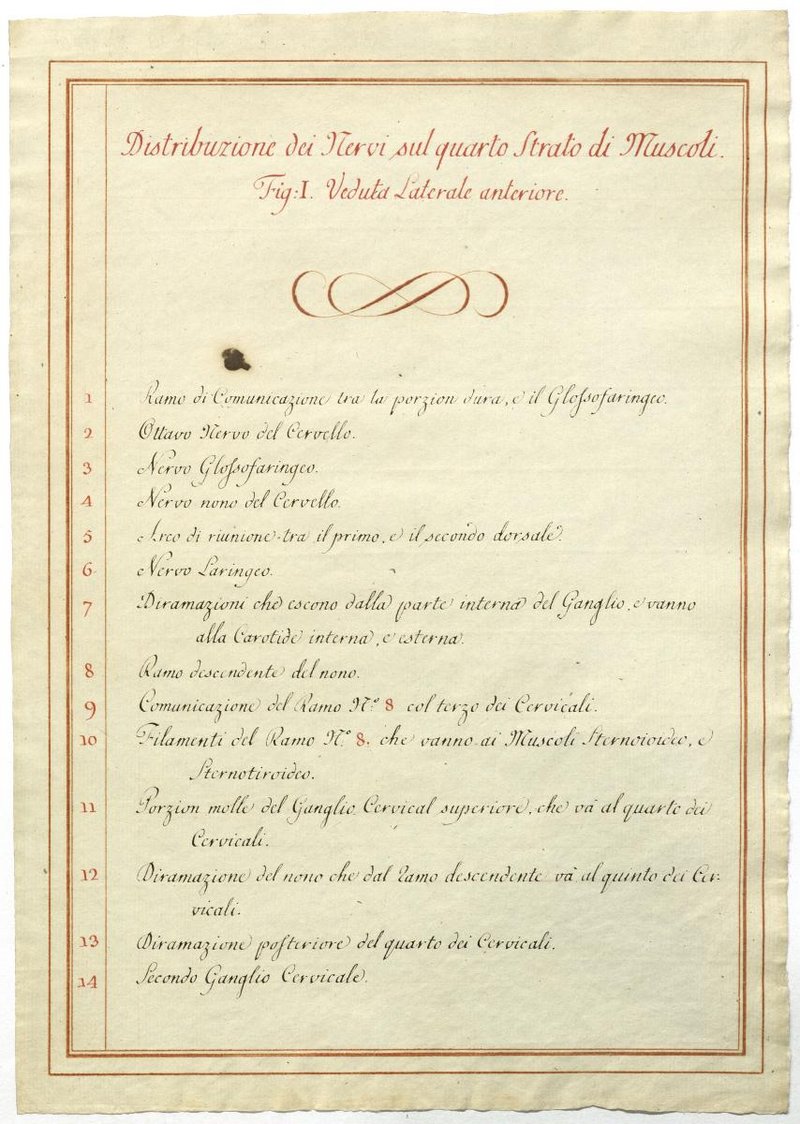 Distribuzione dei Nervi sul quarto Strato di Muscoli.
Fig:I. Veduta Laterale anteriore.
1 Ramo di Comunicazione tra la porzion dura, e il Glossofaringeo.
2 Ottavo Nervo del Cervello.
3 Nervo Glossofaringeo.
4 Nervo nono del Cervello.
5 Arco di riunione tra il primo, e il secondo dorsale.
6 Nervo Laringeo.
7 Diramazioni che escono dalla parte interna del Ganglio, e vanno
alla Carotide interna, e esterna.
8 Ramo descendente del nono.
9 Comunicazione del Ramo N.º 8 col terzo dei Cervicali.
10 Filamenti del Ramo N.º 8. che vanno ai Muscoli Sternoioideo, e
Sternotiroideo.
11 Porzion molle del Ganglio Cervical superiore, che và al quarto dei
Cervicali.
12 Diramazione del nono che dal Ramo descendente và al quinto dei Cer-
vicali.
13 Diramazione posteriore del quarto dei Cervicali.
14 Secondo Ganglio Cervicale.